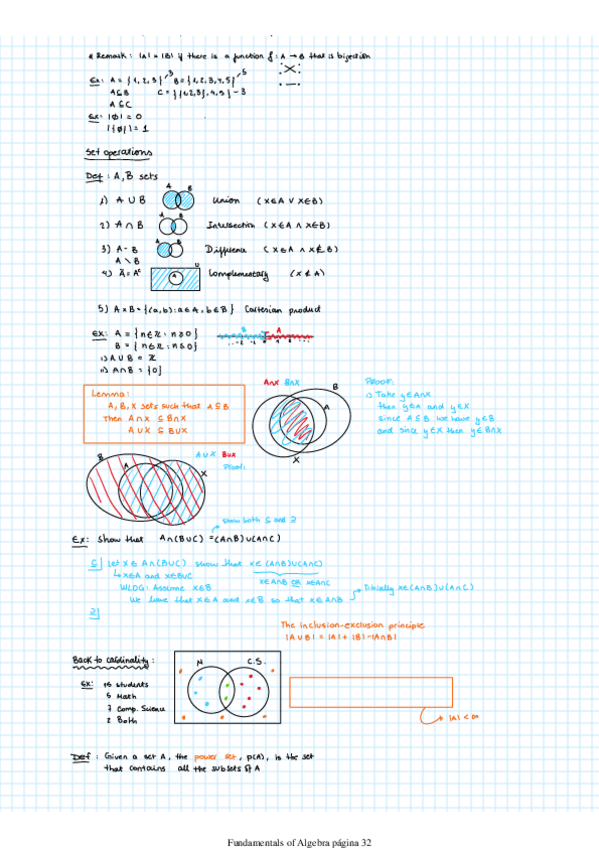 * Remark: |A| = |B| if there is a function f: A → B that is bijection
Ex: A = {1,2,3} 3 B = {1,2,3,4,5} 5
A⊆B C = {{1,2,3},4,5} - 3
A⊆C
Ex: |∅| = 0
|{∅}| = 1
Set operations
Def: A, B sets
A B
1) A ∪ B Union (x∈A ∨ x∈B)
A B
2) A ∩ B Intersection (x∈A ∧ x∈B)
A B
3) A - B Difference (x∈A ∧ x∉B)
A \ B
U
4) Ā = Aᶜ A Complementary (x∉A)
5) A×B = {(a,b): a∈A, b∈B} Cartesian product
Ex: A = {n∈ℤ: n≥0} B A
B = {n∈ℤ: n≤0}
i) A∪B = ℤ
ii) A∩B = {0}
Lemma:
A, B, X sets such that A⊆B
Then A∩X ⊆ B∩X
A∪X ⊆ B∪X
A∩X B∩X
B
A
X
Proof:
i) Take y∈A∩X
then y∈A and y∈X
Since A⊆B we have y∈B
and since y∈X then y∈B∩X
A∪X B∪X
Proof:
B
A
X
show both ⊆ and ⊇
Ex: Show that A∩(B∪C) = (A∩B)∪(A∩C)
⊆] Let x∈A∩(B∪C) show that x∈(A∩B)∪(A∩C)
↳ x∈A and x∈B∪C x∈A∩B OR x∈A∩C
WLOG: Assume x∈B
We have that x∈A and x∈B so that x∈A∩B
x∈(A∩B)∪(A∩C)
⊇]
The inclusion-exclusion principle
|A∪B| = |A| + |B| - |A∩B|
Back to cardinality:
M C.S.
Ex: 16 students
5 Math
7 Comp. Science
2 Both
|A| < ∞
Def: Given a set A, the power set, p(A), is the set
that contains all the subsets of A
Fundamentals of Algebra página 32